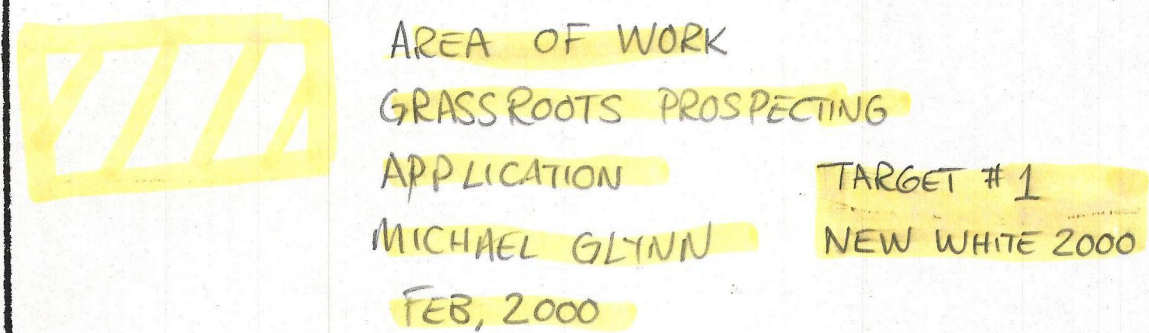 AREA OF WORK
GRASSROOTS PROSPECTING
APPLICATION
MICHAEL GLYNN
FEB, 2000
TARGET # 1
NEW WHITE 2000